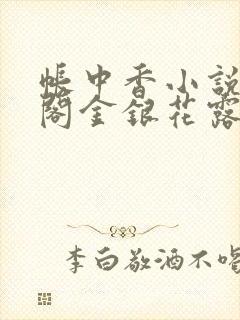 帳中香小說
閣金銀花露
李白敬酒不喝